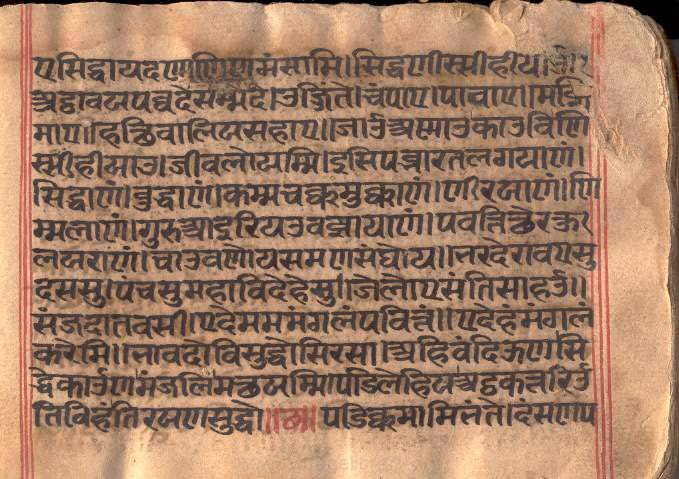 एसिद्धायदणाणिणमंसामि।सिद्धणीस्सीहीय।
अट्ठावदपव्वदेसम्मेदे।उज्जिंते।चंपाए।पावाए।मज्झि
माए।हत्थिवालियसहाए।जाउअण्णाउकाउविणि
स्सीहीआउ।जीवलोयम्मि।इसिपब्भारतलगयाणं।
सिद्धाणं।बुद्धाणं।कम्मचक्कमुक्काणं।णीरयाणं।णि
म्मलाणं।गुरुआइरियउवज्झायाणं।पवत्तिथेरकु
लयराणं।चाउवणोयसमणसंघोय।।भरहेरावएसु
दससु।पंचसुमहाविदेहेसु।जेलोएसंतिसाहउ।।
संजदातवसी।एदेममंगलंपवित्तं।।एदेहमंगलं
करेमि।।भावदोविसुद्धोसिरसा।अहिवंदिऊणसि
द्धेकाउणमंजलिमत्थयम्मिपडिलेहियअट्ठकत्तरिउ
तिविहंतिरयणसुद्धो।।छ।।पडिक्कमामिभंते।दंसणप